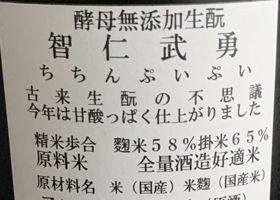 酵母無添加生酛
智仁武勇
ちちんぷいぷい
古来生酛の不思議
今年は甘酸っぱく仕上がりました
精米歩合 麴米58%掛米65%
原料米 全量酒造好適米
原材料名 米(国産)米麴(国産米)